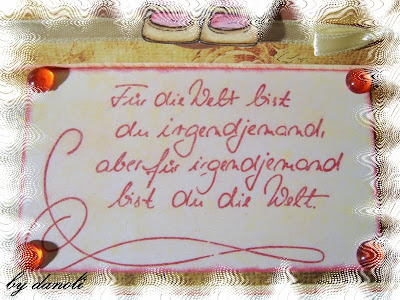 Für die Welt bist
du irgendjemand,
aber für irgendjemand
bist du die Welt.
by danoli